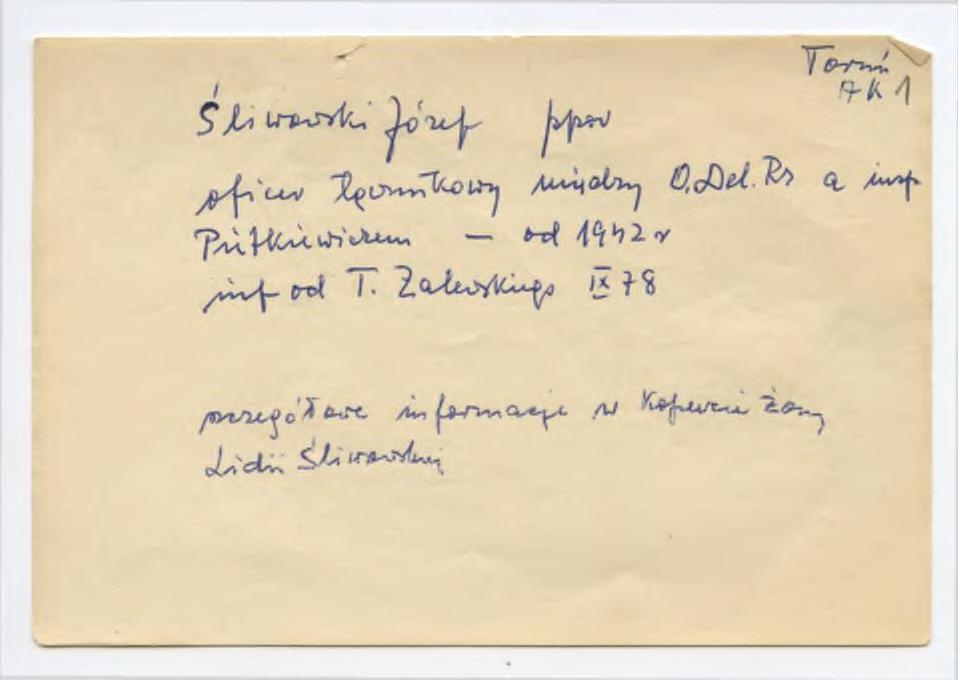 Toruń
AK 1
Śliwowski Józef ppor
oficer łącznikowy między O.Del.Rz a insp
Pietkiewiczem — od 1942 r
inf od T. Zalewskiego IX 78
szczegółowe informacje w kopercie żony
Lidii Śliwowskiej